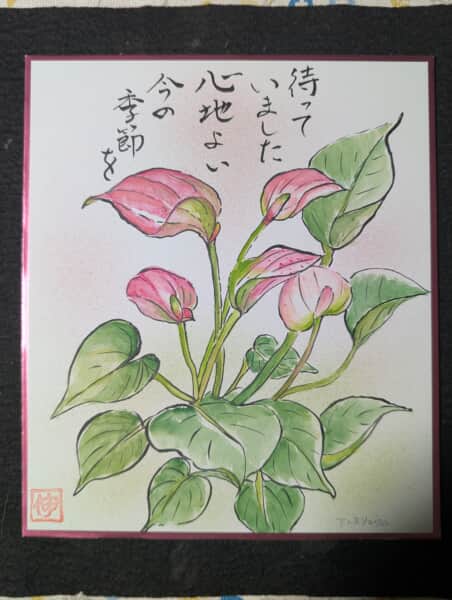 待って
いました
心地よい
今の
季節を
伸